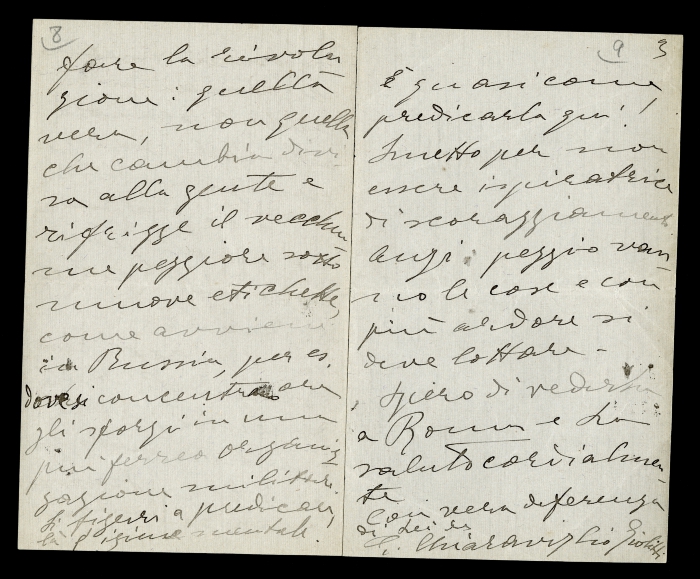 8
fare la rivolu
zione: quella
vera, non quella
che cambia divi
sa alla gente e
rifrigge il vecchiu
me peggiore sotto
nuove etichette,
come avviene
in Russia, per es.
dove si concentrano ora
gli sforzi in una
più ferrea organiz
zazione militar
si figuri a predicar
la igiene mentale.
9 3
È quasi come
predicarla qui!
Smetto per non
essere ispiratrice
di scoraggiamento
Anzi: peggio van
no le cose e con
più ardore si
deve lottare -
Spero di vederla
a Roma e La
saluto cordialmen
te
Con vera deferenza
di Lei
C. Chiaraviglio Giolitti